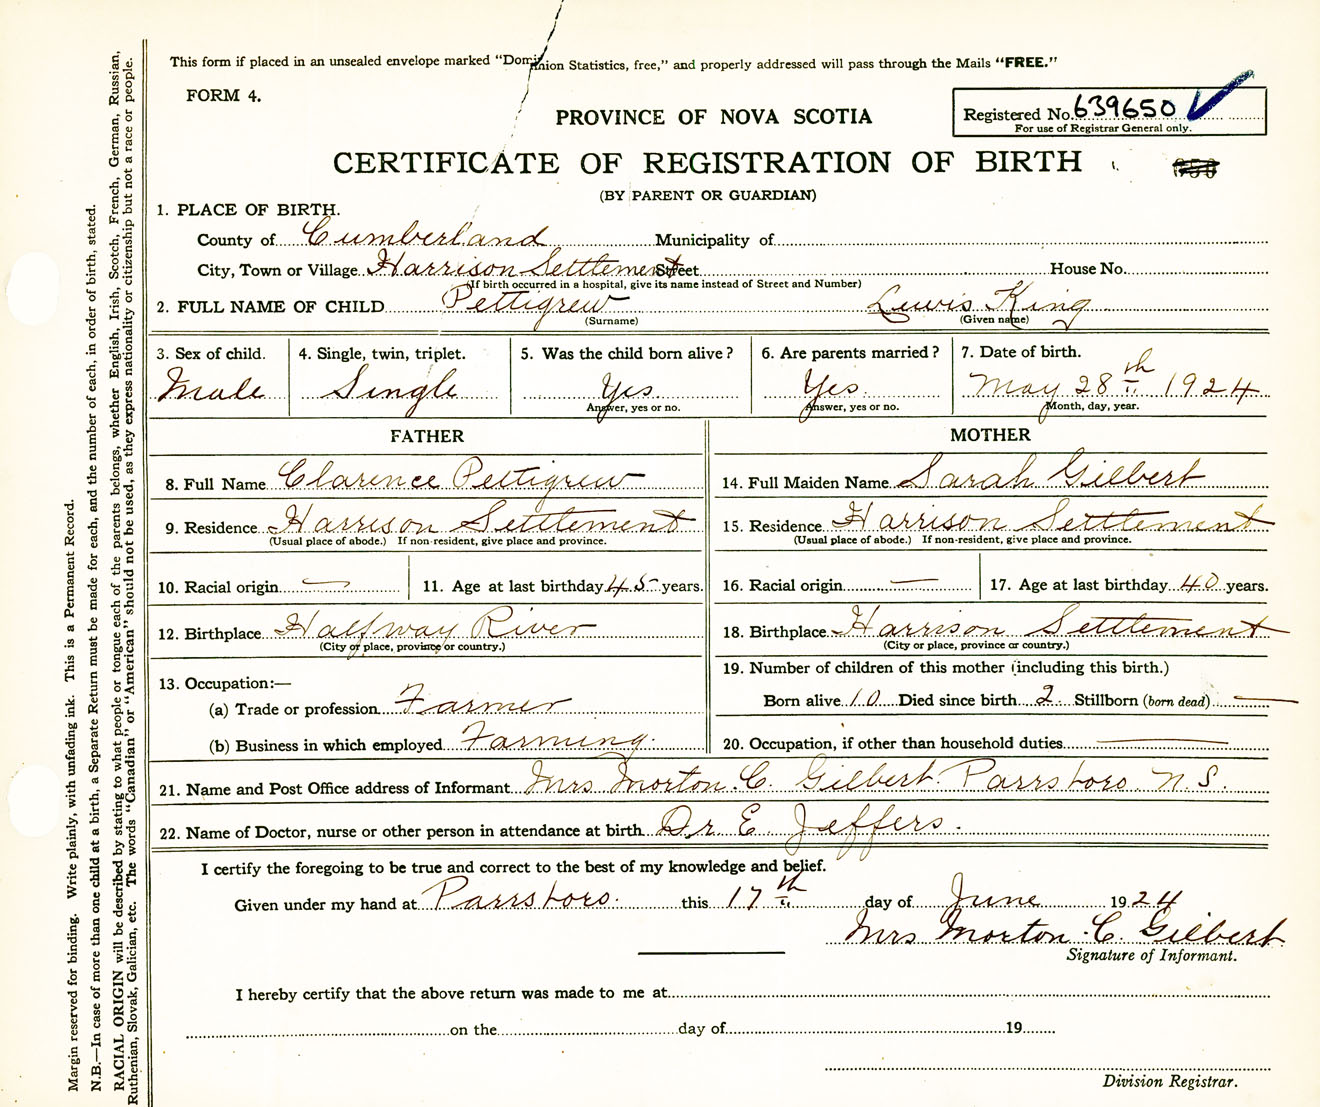 This form if placed in an unsealed envelope marked "Dominion Statistics, free," and properly addressed will pass through the Mails "FREE."
FORM 4.
PROVINCE OF NOVA SCOTIA
Registered No. 639650
For use of Registrar General only.
CERTIFICATE OF REGISTRATION OF BIRTH
(BY PARENT OR GUARDIAN)
1. PLACE OF BIRTH.
County of Cumberland Municipality of
City, Town or Village Harrison Settlement Street House No.
(If birth occurred in a hospital, give its name instead of Street and Number)
2. FULL NAME OF CHILD Pettigrew Lewis King
(Surname) (Given name)
3. Sex of child. 4. Single, twin, triplet. 5. Was the child born alive? 6. Are parents married? 7. Date of birth.
Male Single Yes Yes May 28th 1924
Answer, yes or no. Answer, yes or no. Month, day, year.
FATHER MOTHER
8. Full Name Clarence Pettigrew 14. Full Maiden Name Sarah Gilbert
9. Residence Harrison Settlement 15. Residence Harrison Settlement
(Usual place of abode.) If non-resident, give place and province. (Usual place of abode.) If non-resident, give place and province.
10. Racial origin — 11. Age at last birthday 45 years. 16. Racial origin — 17. Age at last birthday 40 years.
12. Birthplace Halfway River 18. Birthplace Harrison Settlement
(City or place, province or country.) (City or place, province or country.)
13. Occupation:— 19. Number of children of this mother (including this birth.)
(a) Trade or profession Farmer Born alive 10 Died since birth 2 Stillborn (born dead) —
(b) Business in which employed Farming. 20. Occupation, if other than household duties —
21. Name and Post Office address of Informant Mrs Morton. C. Gilbert. Parrsboro N. S.
22. Name of Doctor, nurse or other person in attendance at birth Dr E. Jeffers.
I certify the foregoing to be true and correct to the best of my knowledge and belief.
Given under my hand at Parrsboro. this 17th day of June 1924
Mrs Morton. C. Gilbert
Signature of Informant.
I hereby certify that the above return was made to me at
on the day of 19
Division Registrar.
Margin reserved for binding. Write plainly, with unfading ink. This is a Permanent Record.
N.B.—In case of more than one child at a birth, a Separate Return must be made for each, and the number of each, in order of birth, stated.
RACIAL ORIGIN will be described by stating to what people or tongue each of the parents belongs, whether English, Irish, Scotch, French, German, Russian,
Ruthenian, Slovak, Galician, etc. The words "Canadian" or "American" should not be used, as they express nationality or citizenship but not a race or people.